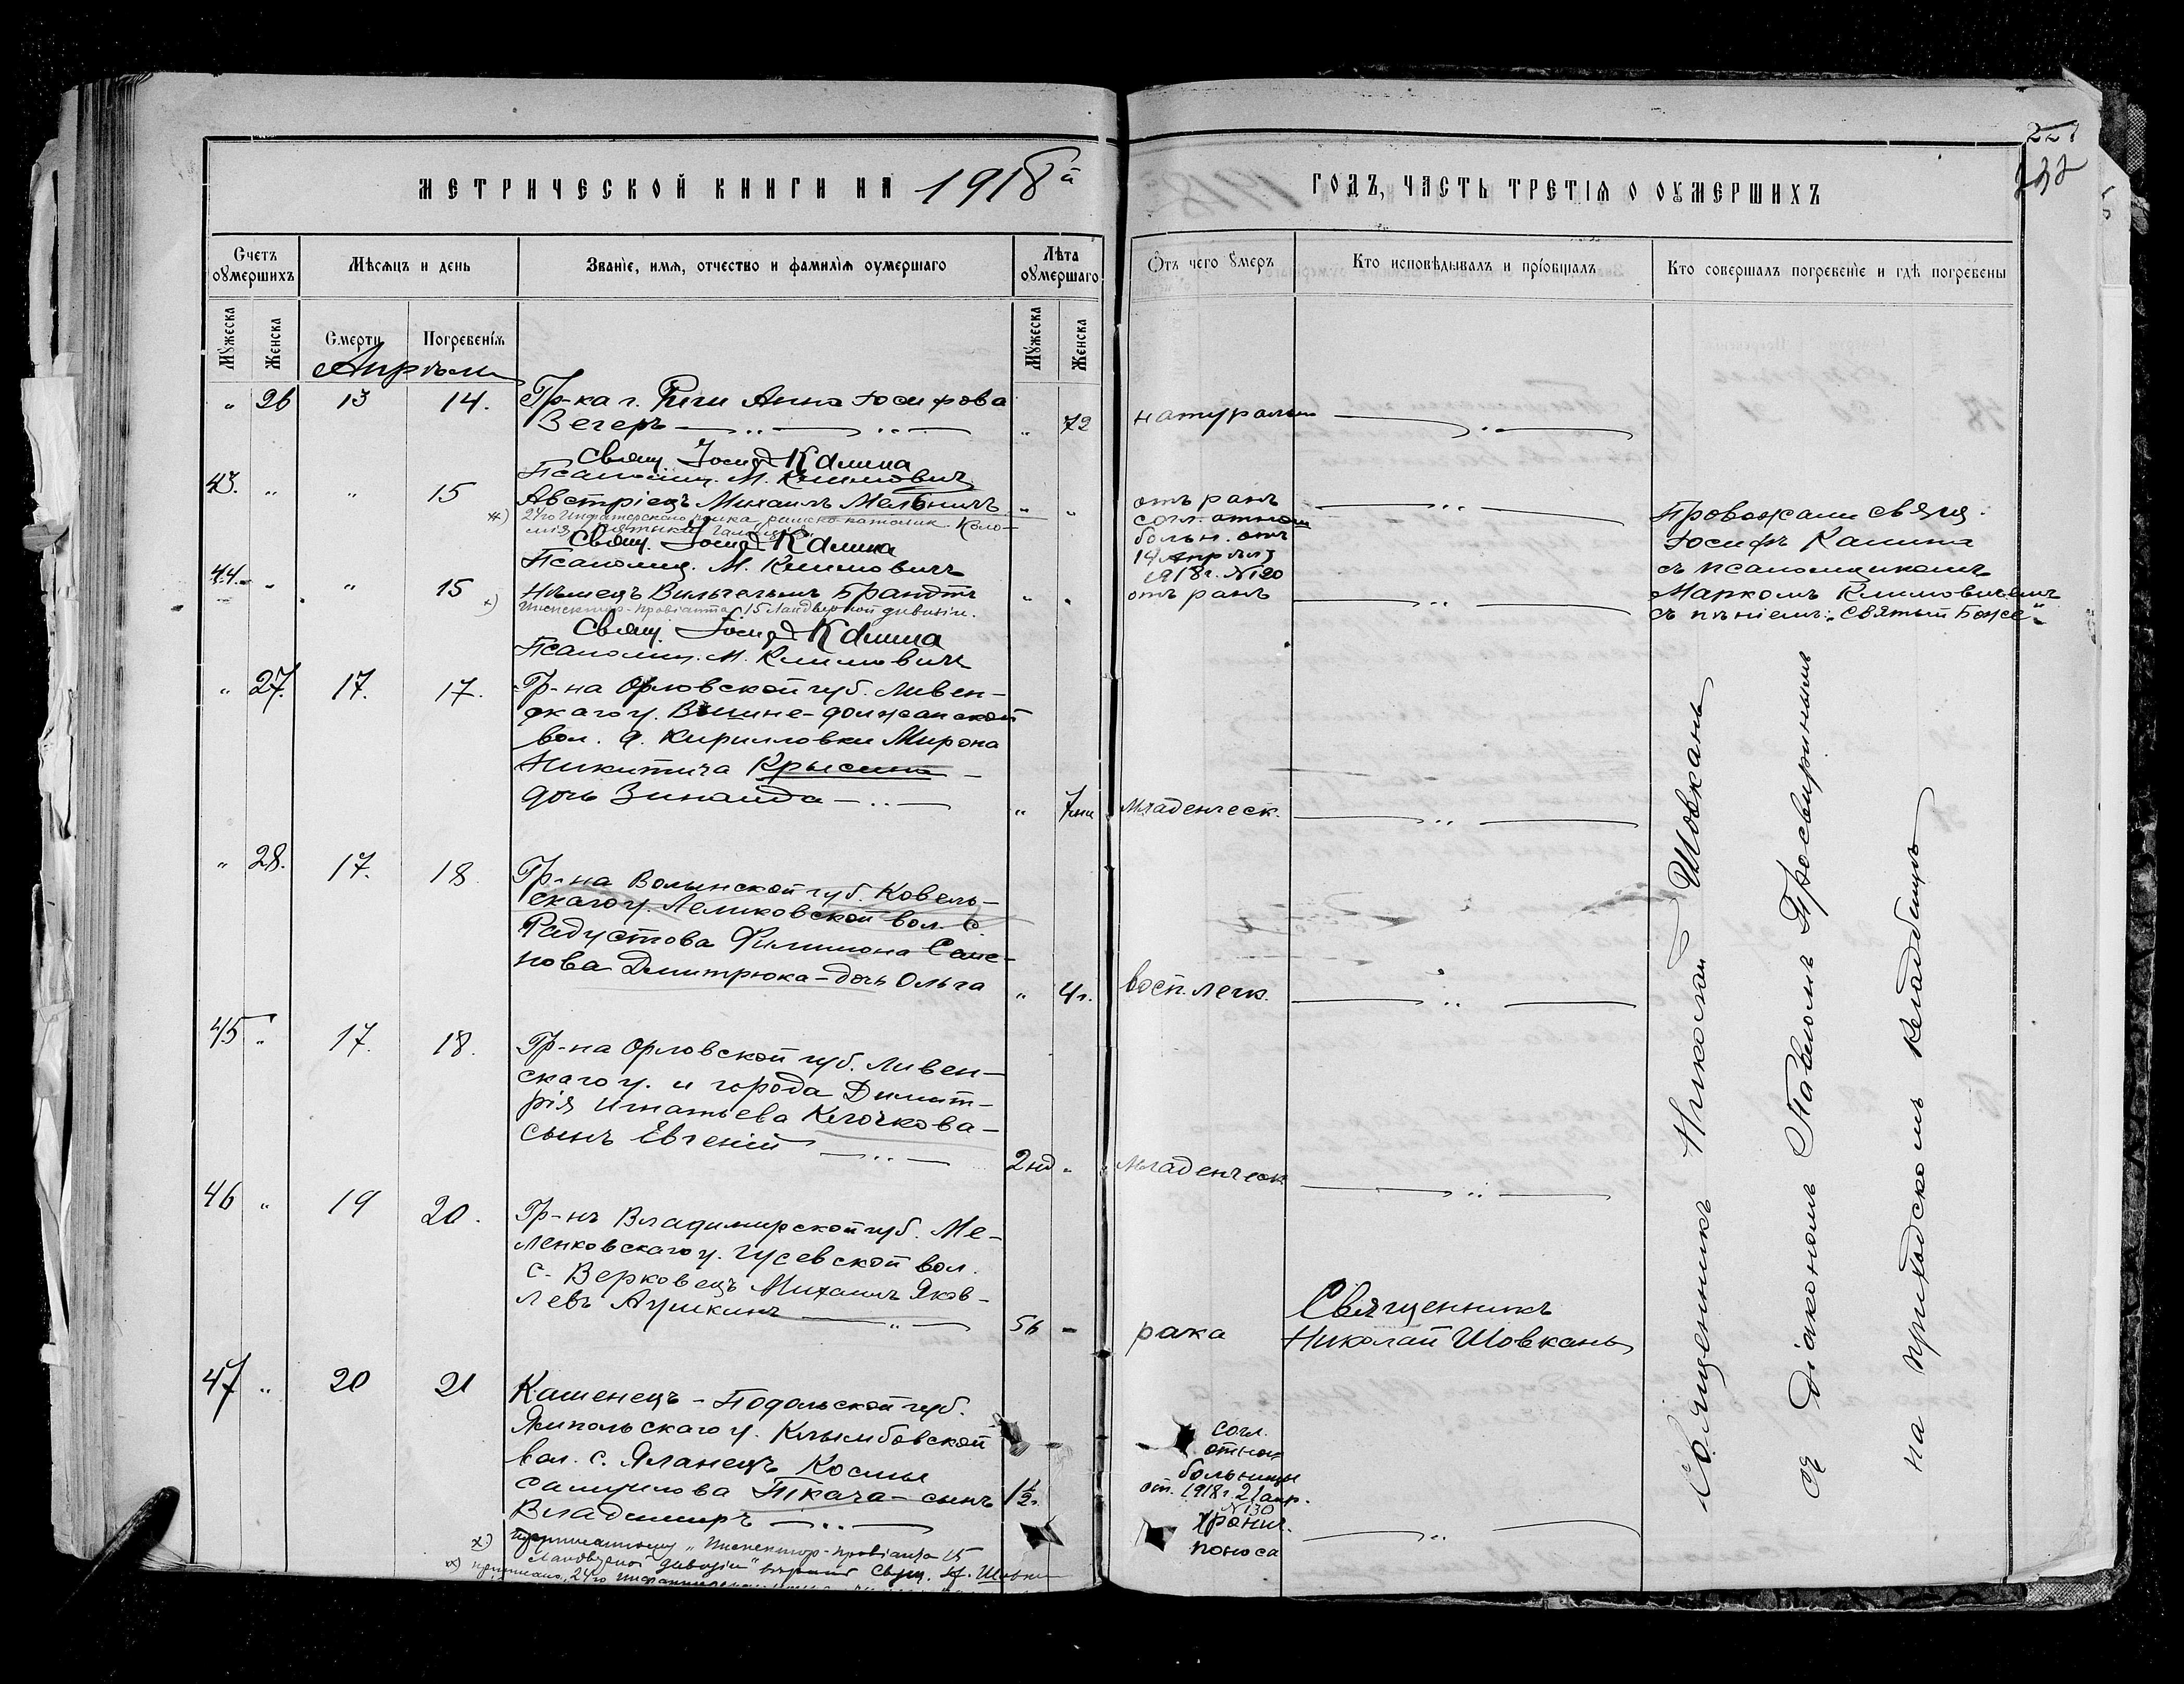 МЕТРИЧЕСКОЙ КНИГИ НА 1918й
ГОДЪ, ЧАСТЬ ТРЕТІЯ О ОУМЕРШИХЪ
227
Счетъ оумершихъ
Мѣсяцъ и день
Званіе, имя, отчество и фамилія оумершаго
Лѣта оумершаго
Отъ чего умеръ
Кто исповѣдывалъ и пріобщалъ
Кто совершалъ погребеніе и гдѣ погребены
Мужеска
Женска
Смерти
Погребенія
Мужеска
Женска
Апрѣль
" 26 13 14. Гр-ка г. Риги Анна Іосифова
Вегеръ " 72 натуральн
Свящ. Іосиф Калина
Псаломщ. М. Климовичъ
43. " " 15 Австріецъ Михаилъ Мельникъ " "
хх) 24го Инфатерскаго полка, римско-католик. Коло-
мія Пятыка Галиція
отъ ранъ
согл. отнош
больн. отъ
14 Апрѣля
1918 г. № 120
Провожали свящ.
Іосифъ Калина
съ псаломщикомъ
Маркомъ Климовичемъ
съ пѣніемъ: "Святый Боже"
Свящ. Іосиф Калина
Псаломщ. М. Климовичъ
44. " " 15 Нѣмецъ Вильгельмъ Брандтъ " "
х) Инспектор-провіанта 15 Ландверной дивизіи.
отъ ранъ
Свящ. Іосиф Калина
Псаломщ. М. Климовичъ
" 27. 17. 17. Гр-на Орловской губ. Ливен-
скаго у. Вышне-должанской
вол. д. Кирилловки Мирона
Никитича Крысина -
дочь Зинаида " 7 младенческ.
" 28. 17. 18. Гр-на Волынской губ. Ковель-
скаго у. Великовской вол. с.
Радустова Филимона Семе-
нова Дмитрюка - дочь Ольга " 4 г. восп. легк.
45 " 17. 18. Гр-на Орловской губ. Ливен-
скаго у. и города Димит-
рія Игнатьева Клочкова -
сынъ Евгеній 2 нд " младенческ
46 " 19 20. Гр-нъ Владимирской губ. Ме-
ленковскаго у. Гусевской вол.
с. Верковецъ Михаилъ Яков-
левъ Аришкинъ 56 - рака
Священникъ
Николай Шовкань
47 " 20 21 Каменецъ-Подольской губ.
Ямпольскаго у. Клымбовской
вол. с. Яланецъ Космы
Самуилова Ткача - сынъ 1½ г.
Владимиръ
согл.
отнош
больницы
от. 1918 г. 21 апр.
№ 130
хронич.
поноса
Священникъ Николай Шовкань
съ діакономъ Павломъ Просвирнинымъ
на приходскомъ кладбищѣ
х) "Инспектор-провіанта 15
Ландверной дивизіи" Свящ. Н. Шовкань
хх) приписано, 24го